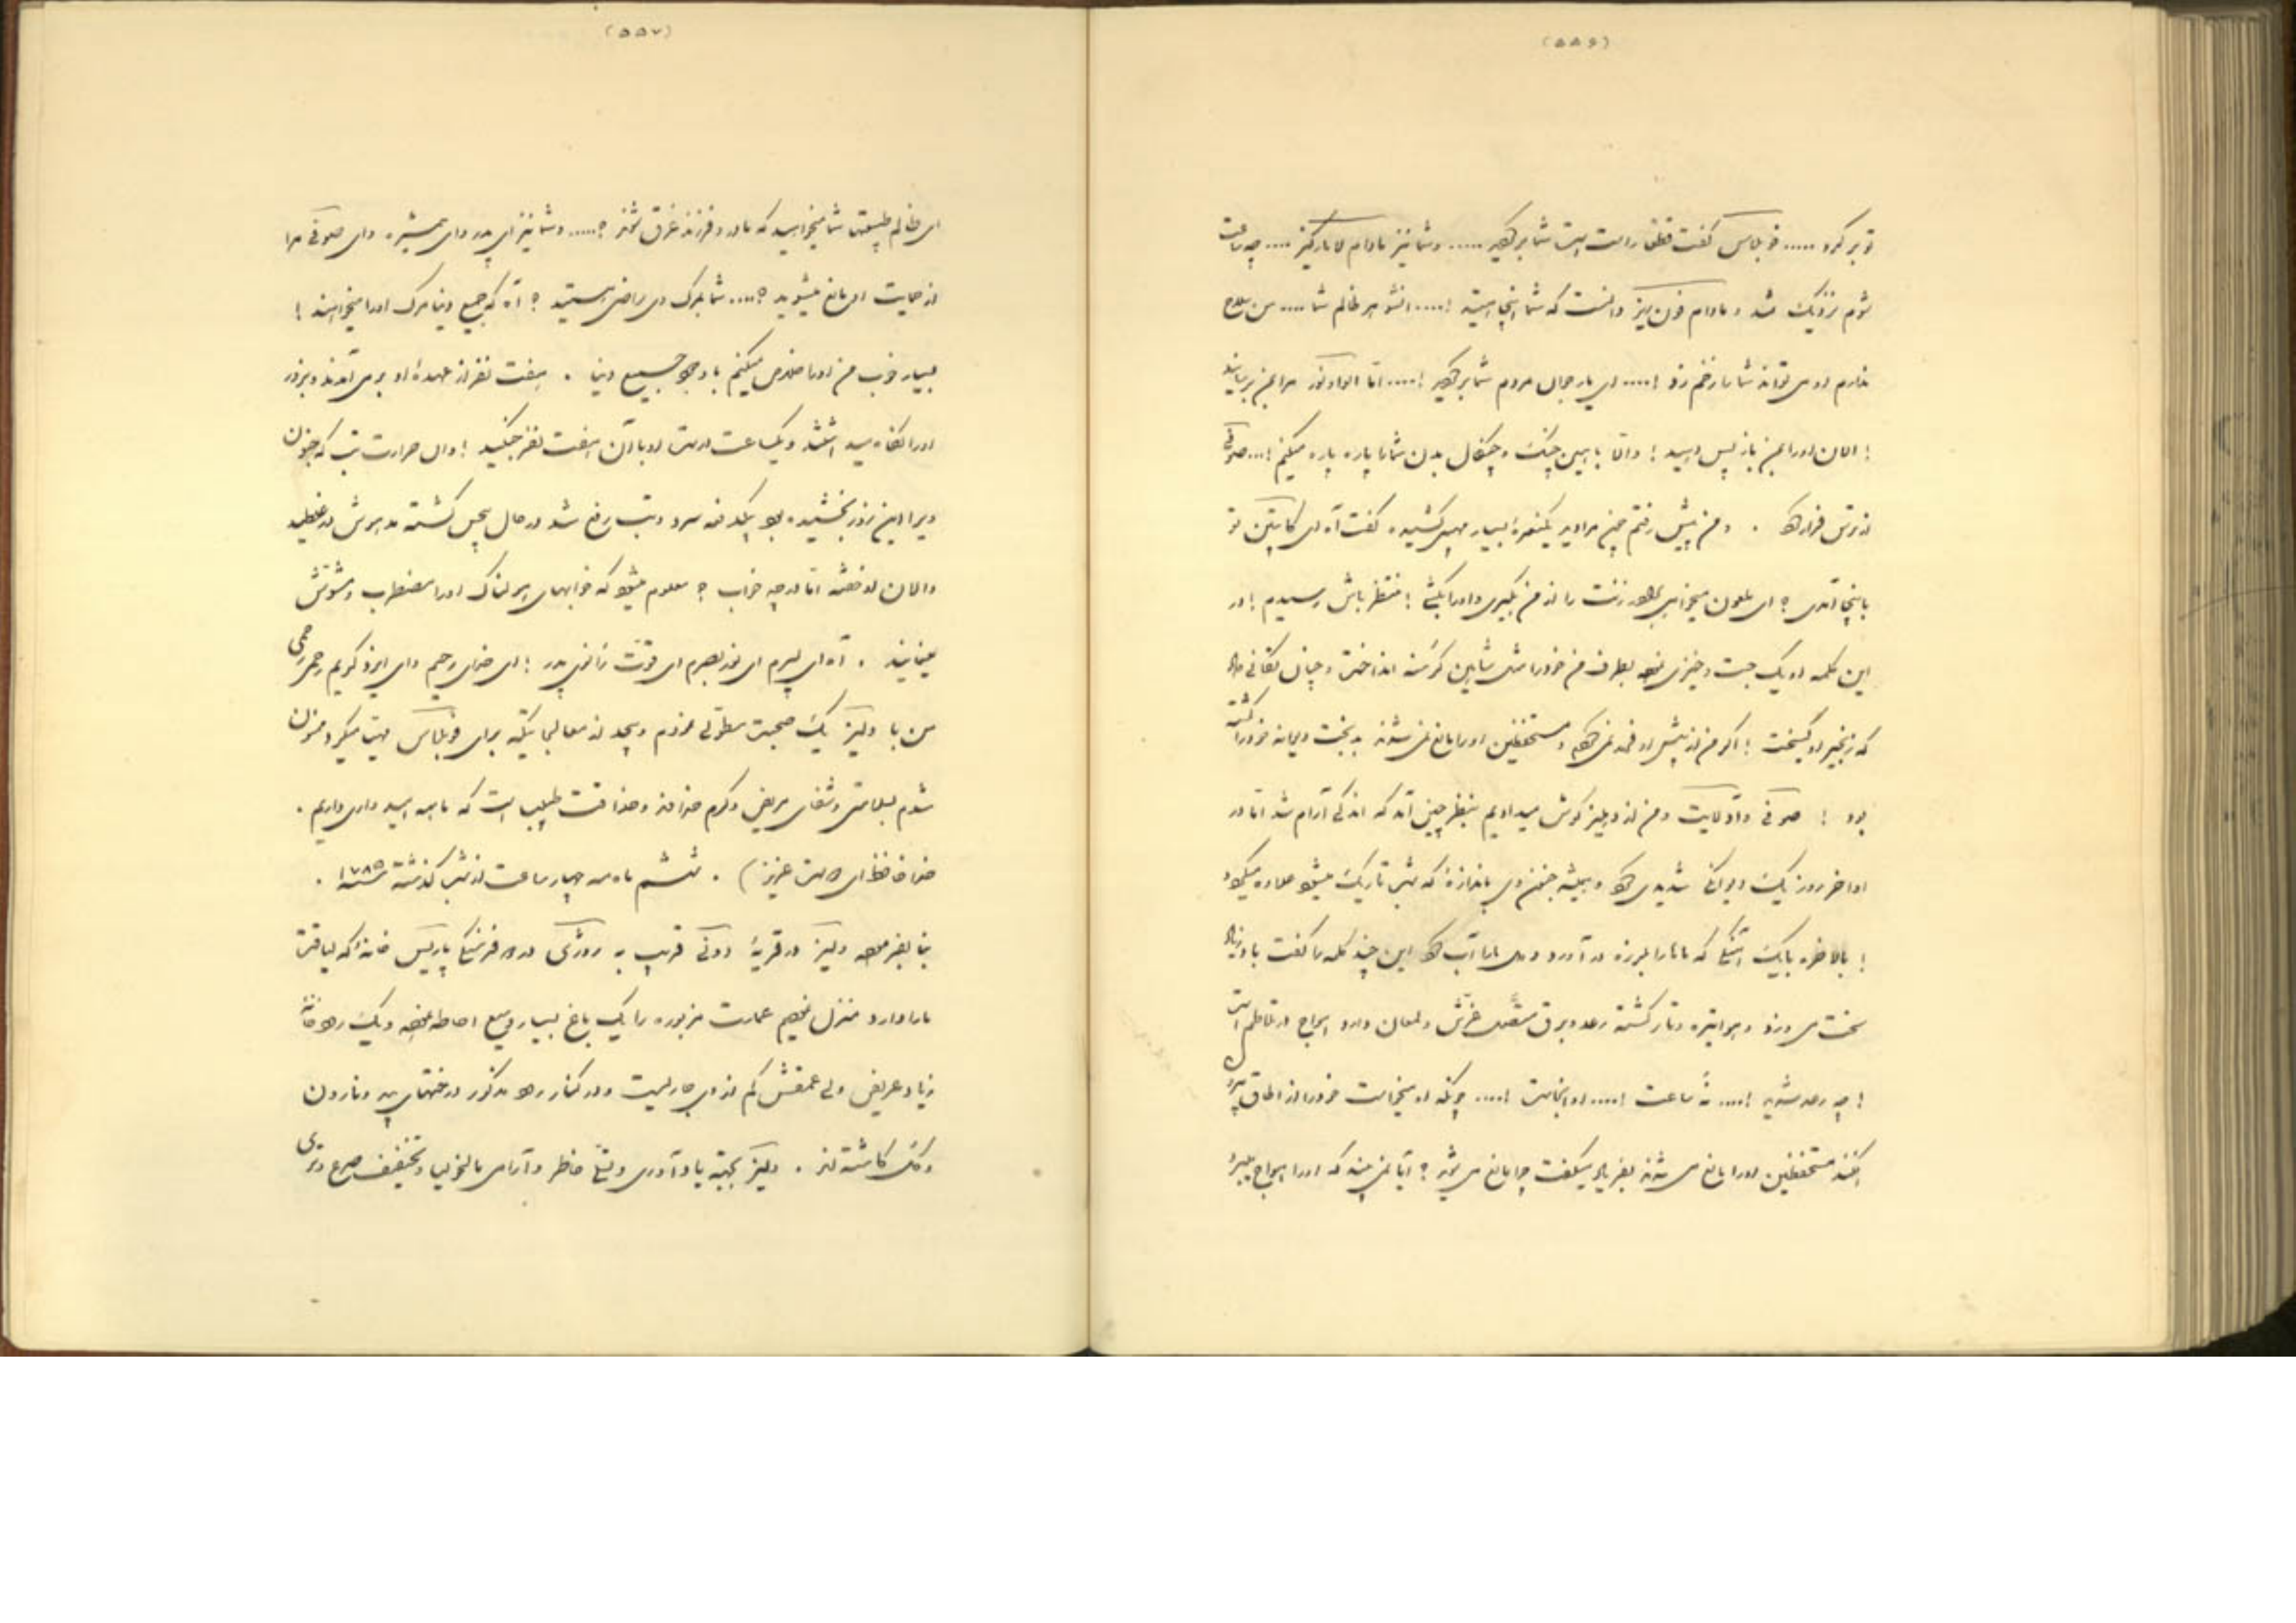 (۵۵۶)
تو بر کرد ..... گفت قطعا راست است شما بر ..... و شما نیز مادام .... چه ساعت
شوم نزدیک شد و مادام دانست که شما اینجا هستید !.... شوهر ظالم شما .... من سلاح
ندارم او می تواند شما را زخم زند !.... ای مردم شما بر !.... اما او را بمن برسانید
! الان او را بمن باز پس دهید ! والا با همین چنگ و چنگال بدن شما را پاره پاره میکنم !... صوفی
از ترس فرار . و من پیش رفتم چون مرا دید یکنعره بسیار مهیبی کشیده گفت آه ای کاپیتن تو
باینجا آمدی ؟ ای ملعون میخواهی زنت را از من بگیری و او را بکشی ! منتظر باش رسیدم ! در
این کلمه او یک جست و خیزی بطرف من خود را مثل شاهین گرسنه انداخت و چنان تکانی داد
که زنجیر او گسیخت ! اگر من از پیش او نمی و مستحفظین او را مانع نمی شدند بدبخت دیوانه خود را کشته
بود ! صوفی و آدلایت و من از دهلیز گوش میدادیم بنظر چنین آمد که اندکی آرام شد اما در
اواخر روز یک دیوانگی شدیدی و همیشه جنون وی باندازه که شب تاریک میشود علاوه میکرد
! بالاخره بایک آهنگی که ماها را بلرزه در آورد و دل ما را آب این چند کلمه را گفت باد زیاد
سخت می وزد و هوا تیره و تار گشته رعد و برق متصل غرش و لمعان دارد امواج در تلاطم است
! چه رعد شدید !.... نه ساعت !.... او اینجاست !.... چونکه او میخواست خود را از اطاق بیرون
افکند مستحفظین او را مانع می شدند بفریاد میگفت چرا مانع می شوید ؟ آیا نمی بینید که او را امواج میبرد
(۵۵۷)
ای ظالم طبیعتان شما میخواهید که مادر و فرزند غرق شوند ؟..... و شما نیز ای پدر و ای همشیره و ای صوفی مرا
از حمایت او مانع میشوید ؟.... شما بمرگ وی راضی هستید ؟ آه که جمیع دنیا مرگ او را میخواهند !
بسیار خوب من او را خلاص میکنم با وجود جمیع دنیا . هفت نفر از عهدهٔ او بر می آمدند و بزور
او را نگاه میداشتند و یکساعت است او با آن هفت نفر جنگید ! و الان حرارت تب که جنون
ویرا این زور بخشیده بود یکدفعه سرد و تب رفع شد در حال بیحس گشته مدهوش در غلطید
و الان او خفته اما در چه خواب ؟ معلوم میشود که خوابهای هولناک او را مضطرب و مشوش
مینمایند . آه ای پسرم ای نور بصرم ای قوت زانوی پدر ! ای خدای رحیم و ای ایزد کریم رحمی
من با ولیز یک صحبت مطولی نمودم و بیحد از معالجاتیکه برای مهیا میکرد ممنون
شدم سلامتی و شفای مریض و کرم خداوند و حذاقت طبیب است که ما همه امیدواری داریم .
خدا حافظ ای دوست عزیز ) . ششم ماه مه چهار ساعت از شب گذشته سنه ۱۷۸۵ .
بنا بفرموده ولیز در قریهٔ دونی قریب به رودش در دو فرسنگی پاریس خانه را که لیاقت
ما را دارد منزل نمودیم عمارت مزبوره را یک باغ بسیار وسیع احاطه نموده و یک رودخانه
زیاد عریض ولی عمقش کم از وی جاریست و در کنار رود مذکور درختهای بید و نارون
و گل کاشته اند . ولیز بجهة یادآوری و تسلی خاطر و آرامی مالیخولیا و تخفیف صرع و تری